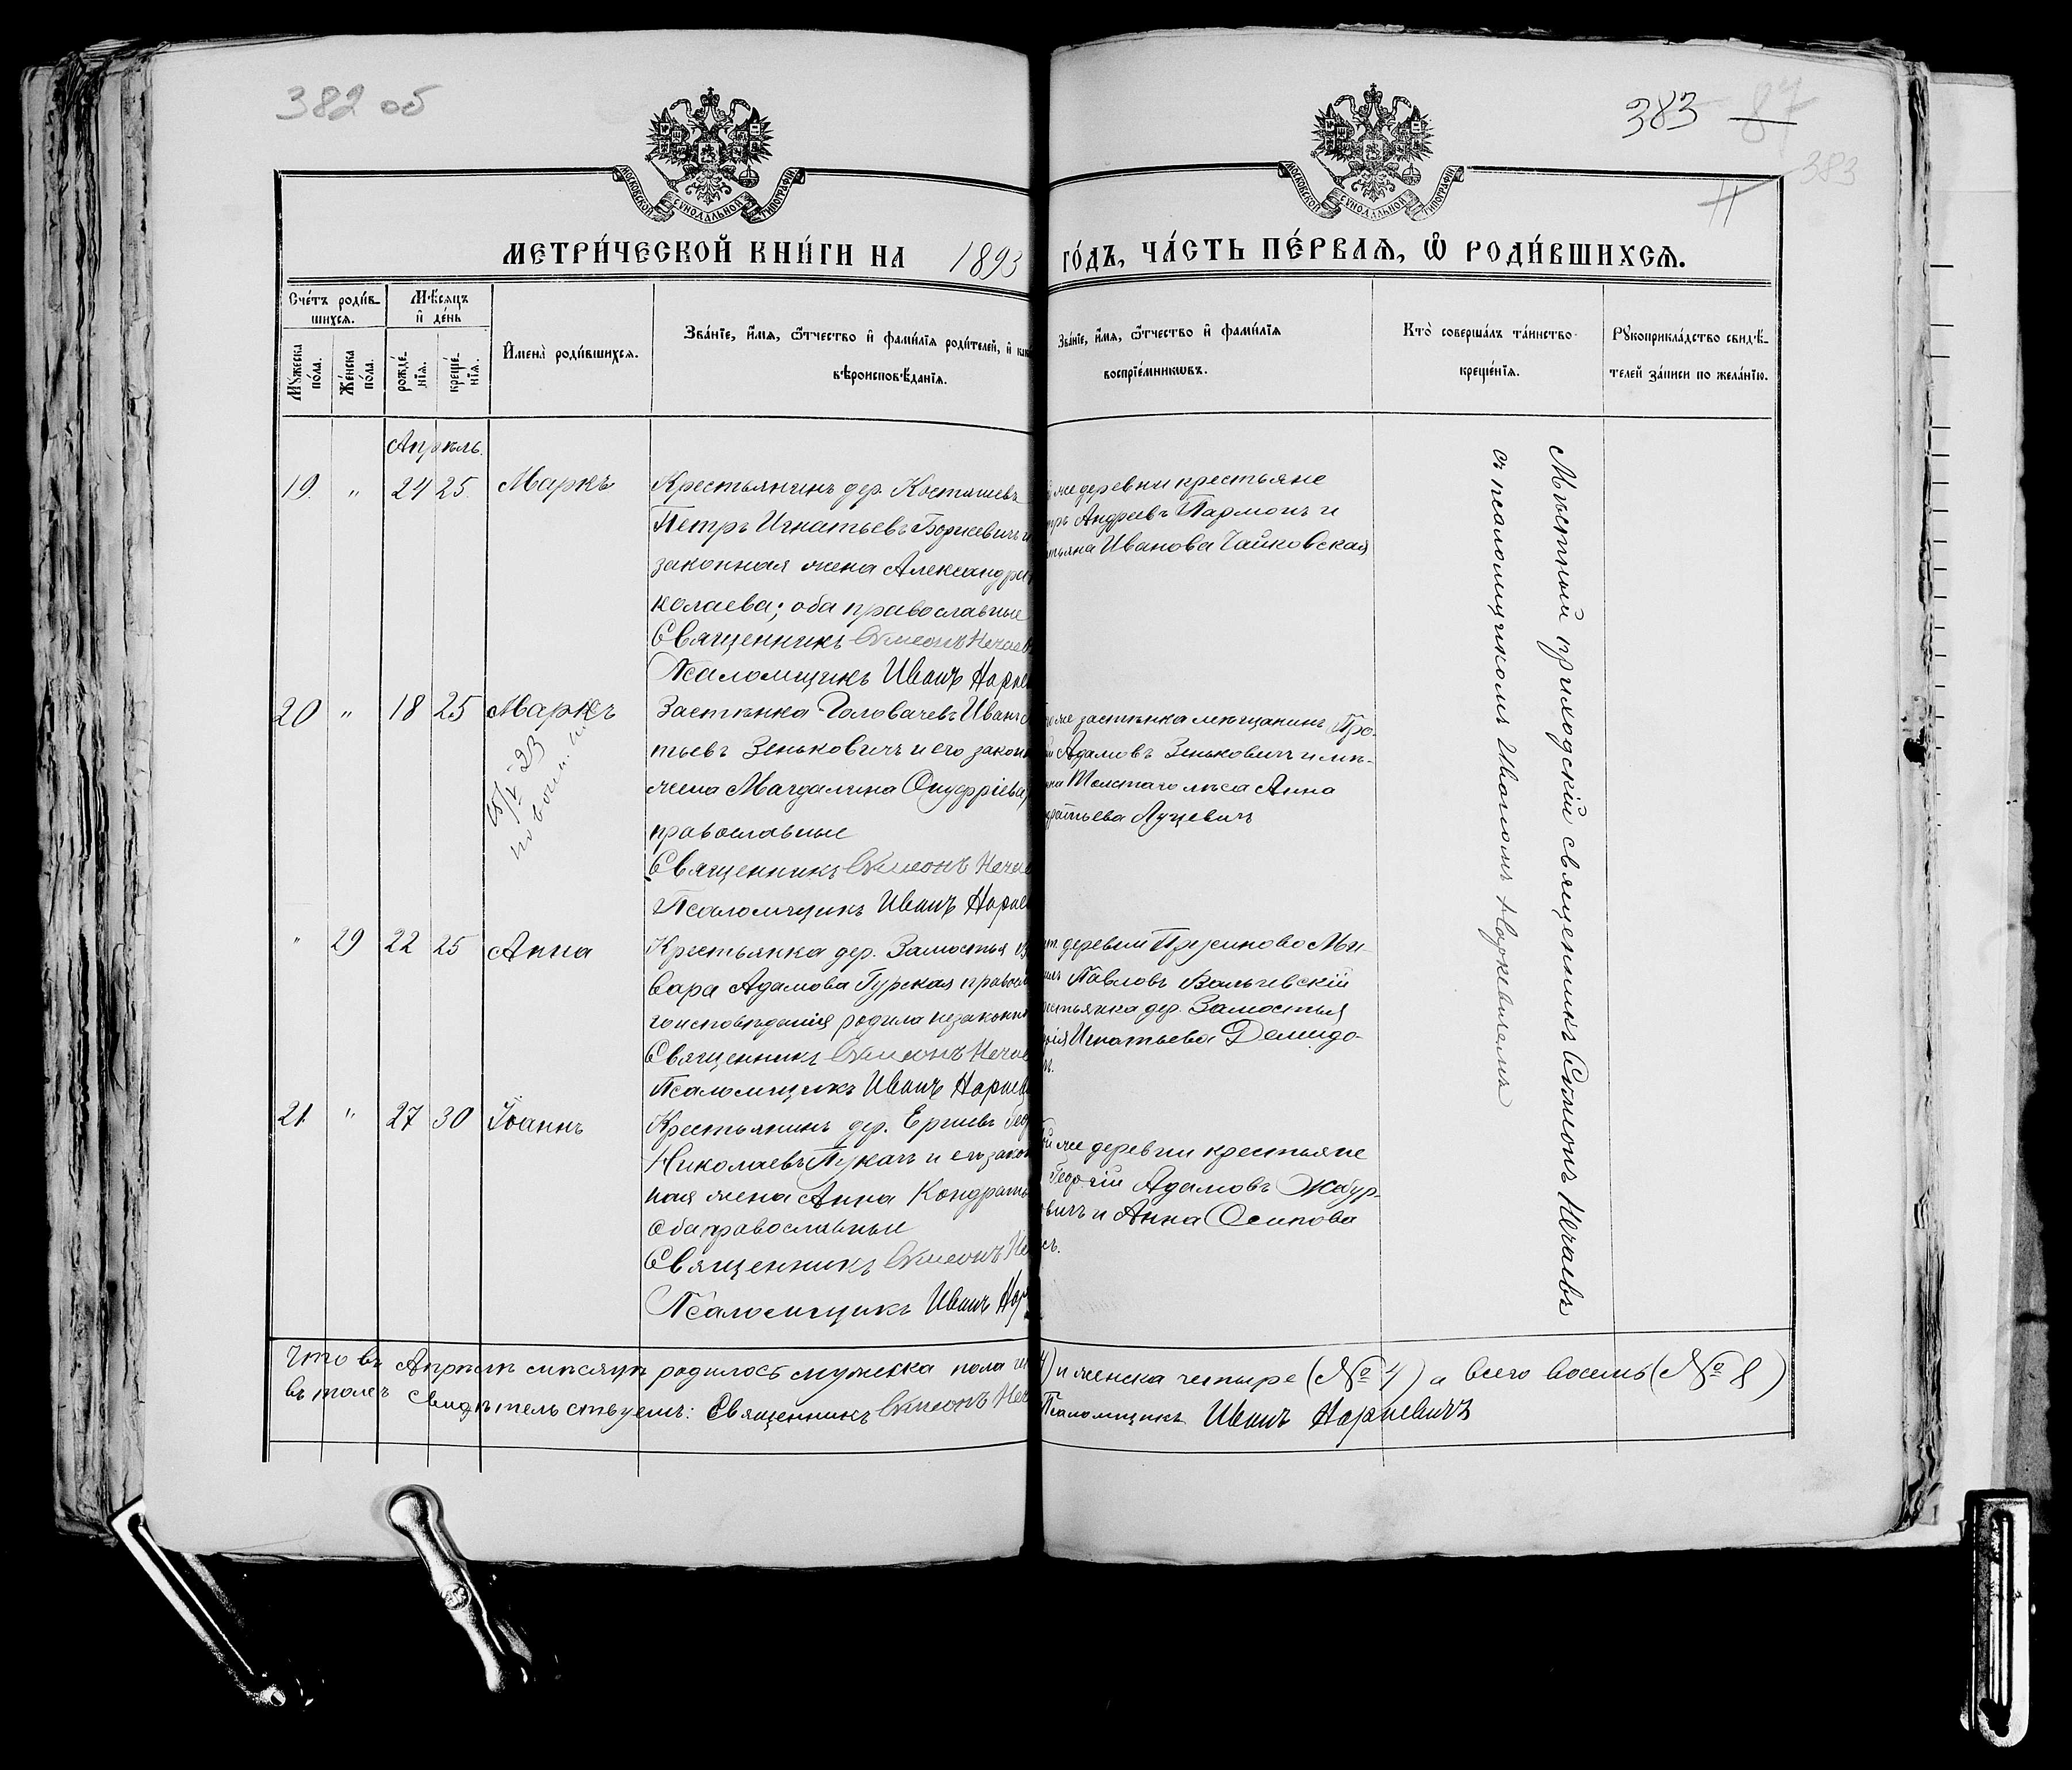 382 об
383
87
383
МОСКОВСКОЙ СѴНОДАЛЬНОЙ ТИПОГРАФІИ
МОСКОВСКОЙ СѴНОДАЛЬНОЙ ТИПОГРАФІИ
МЕТРИ́ЧЕСКОЙ КНИ́ГИ НА 1893 ГО́ДЪ, ЧА́СТЬ ПЕ́РВАѦ, Ѿ РОДИ́ВШИХСѦ.
Счетъ родив-
шихся.
Мужеска пола.
Женска пола.
Мѣсяцъ и день
рожде-нія.
креще-нія.
Имена родившихся.
Званіе, имя, отчество и фамилія родителей, и как
вѣроисповѣданія.
Званіе, имя, отчество и фамилія
воспріемниковъ.
Кто совершалъ таинство
крещенія.
Рукоприкладство свидѣ-
телей записи по желанію.
Апрѣль.
19. " 24 25. Маркъ
Крестьянинъ дер. Костяшевъ
Петръ Игнатьевъ Боркевичъ и
законная жена Александра
колаева; оба православные
Священникъ Симеонъ Нечаевъ
Псаломщикъ Иванъ Нарке
же деревни крестьяне
Андреевъ Пармонъ и
Иванова Чайковская
20 " 18 25 Маркъ
Застѣнка Головачевъ Иванъ
тьевъ Зеньковичъ и его закон
жена Магдалина Онуфріева,
православные
Священникъ Симеонъ Нечае
Псаломщикъ Иванъ Нарке
же застѣнка мѣщанинъ Про-
Адамовъ Зеньковичъ и мѣ-
Толстаго лѣса Анна
Луцевичъ
" 29 22 25 Анна
Крестьянка дер. Замостья
вара Адамова Гурская правосл
го исповѣданія родила незаконн
Священникъ Симеонъ Нечае
Псаломщикъ Иванъ Нарке
деревни Прусиново Ми-
Павловъ Вальчевскій
дер. Замостья
Игнатьева Демидо-
21. " 27 30 Іоаннъ
Крестьянинъ дер. Ершевъ Гео
Николаевъ Пукачъ и его закон
ная жена Анна Кондрать
оба православные
Священникъ Симеонъ Не
Псаломщикъ Иванъ Нар
же деревни крестьяне
Георгій Адамовъ Жабур-
вичъ и Анна Осипова
Мѣстный приходскій священникъ Симеонъ Нечаевъ
съ псаломщикомъ Иваномъ Наркевичемъ
Что въ Апрѣлѣ мѣсяцѣ родилось мужеска пола че 4) и женска четыре (№ 4) а всего восемь (№ 8)
въ томъ свидѣтельствуемъ: Священникъ Симеонъ Неч Псаломщикъ Иванъ Наркевичъ